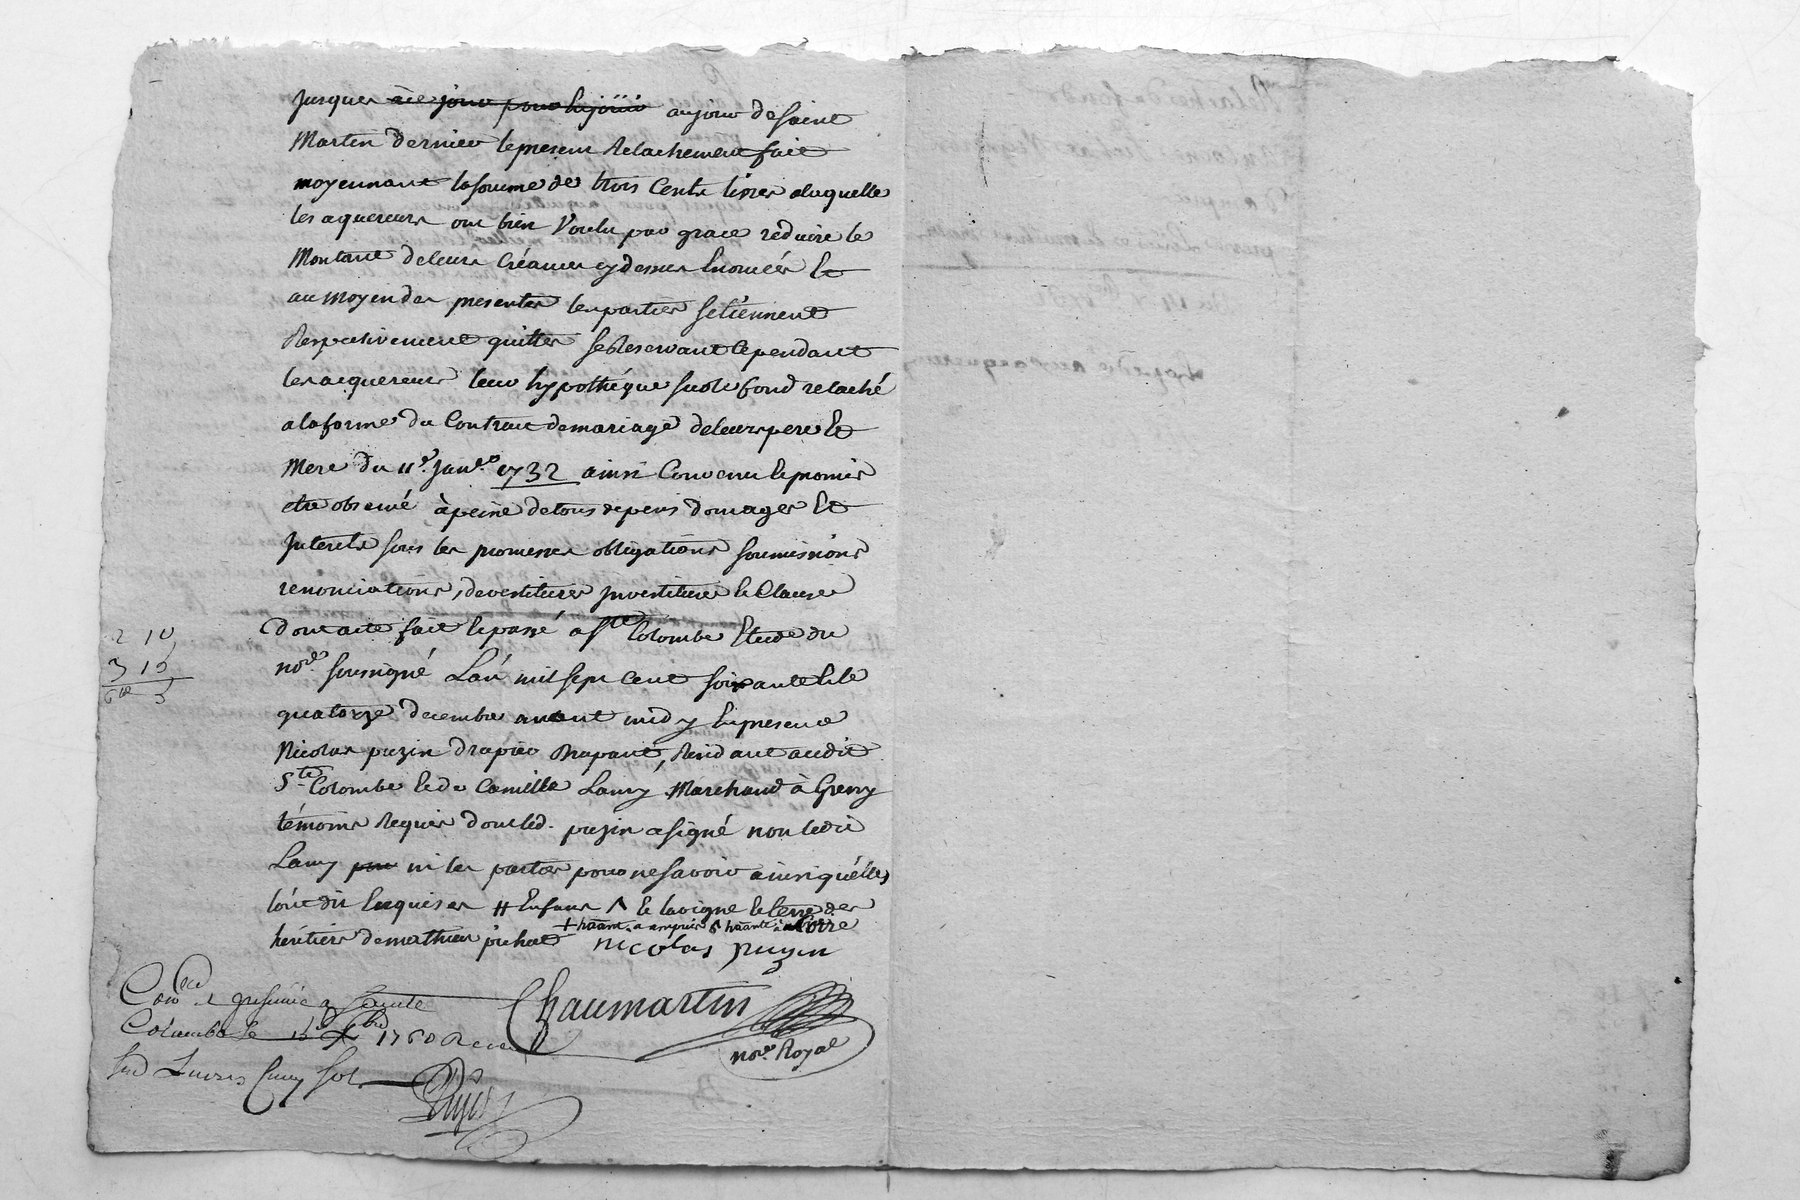 jusques à ce jour pour la jouir au jour de saint
Martin dernier le present relachement fait
moyennant la somme de trois cents livres alaquelle
les aquereurs ont bien voulu par grace reduire le
Montant de leurs Créances cy dessus Enoncées Et
au moyen des presentes les parties se tiennent
Respectivement quittes se Reservant cependant
les acquereurs leur hypothéque sur le fond relaché
ala forme du Contract de mariage de leurs pere Et
Mere du 11e. janvr. 1732 ainsi Convenu le promis
etre observé à peine de tous depens domages Et
Interets sous les promesses obligations soumissions
renonciations, devestitures investitures & Clauses
dont acte fait & passé a Ste Colombe Etude du
nore. soussigné L'an mil sept cent soixante & le
quatorze decembre avant midy En presence
Nicolas puzin drapier drapant, Residant audit
Ste Colombe & de Camille Lamy Marchand à Grenay
témoins Requis dont led. puzin a signé non ledit
Lamy pou ni les parties pour ne savoir ainsi qu'elles
l'ont dit Enquises # Enfans ^ & la vigne & terre des
héritiers de mathieu pichat
nicolas puzin
Chaumartin
nore. Royal
2 10
3 15
6 5
Conlé & insinué a Sainte
Colombe le 15 Xbre 1760 Receu
six Livres Cinq sols